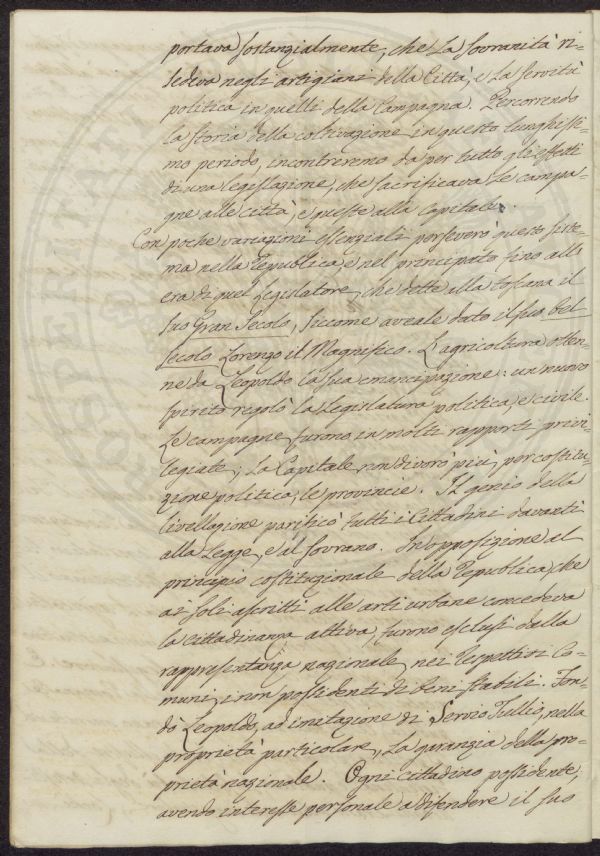 portava sostanzialmente, che la sovranità ri-
sedeva negli artigiani della Città, e la servitù
politica in quelli della Campagna. Percorrendo
la storia della coltivazione in questo lunghissi-
mo periodo, incontreremo da per tutto gli effetti
di una legislazione, che sacrificava le campa-
gne alle città, e queste alla Capitale.
Con poche variazioni essenziali perseverò questo siste-
ma nella Republica, e nel principato fino all'
era di quel Legislatore, che dette alla toscana il
suo Gran Secolo, siccome aveale dato il suo bel
secolo Lorenzo il Magnifico. L'agricoltura otten-
ne da Leopoldo la sua emancipazione: un nuovo
spirito regolò la legislatura politica, e civile.
Le campagne furono in molti rapporti privi-
legiate; la Capitale non divorò più, per costitu-
zione politica, le provincie. Il genio della
livellazione parificò tutti i Cittadini davanti
alla Legge, e al Sovrano. In opposizione al
principio costituzionale della Republica, che
ai soli ascritti alle arti urbane concedeva
la cittadinanza attiva, furono esclusi dalla
rappresentanza nazionale nei respettivi Co-
muni, i non possidenti di beni stabili. Fon-
dò Leopoldo, ad imitazione di Servio Tullio, nella
proprietà particolare, la garanzia della pro-
prietà nazionale. Ogni cittadino possidente,
avendo interesse personale a difendere il suo
PROSPERITÀ